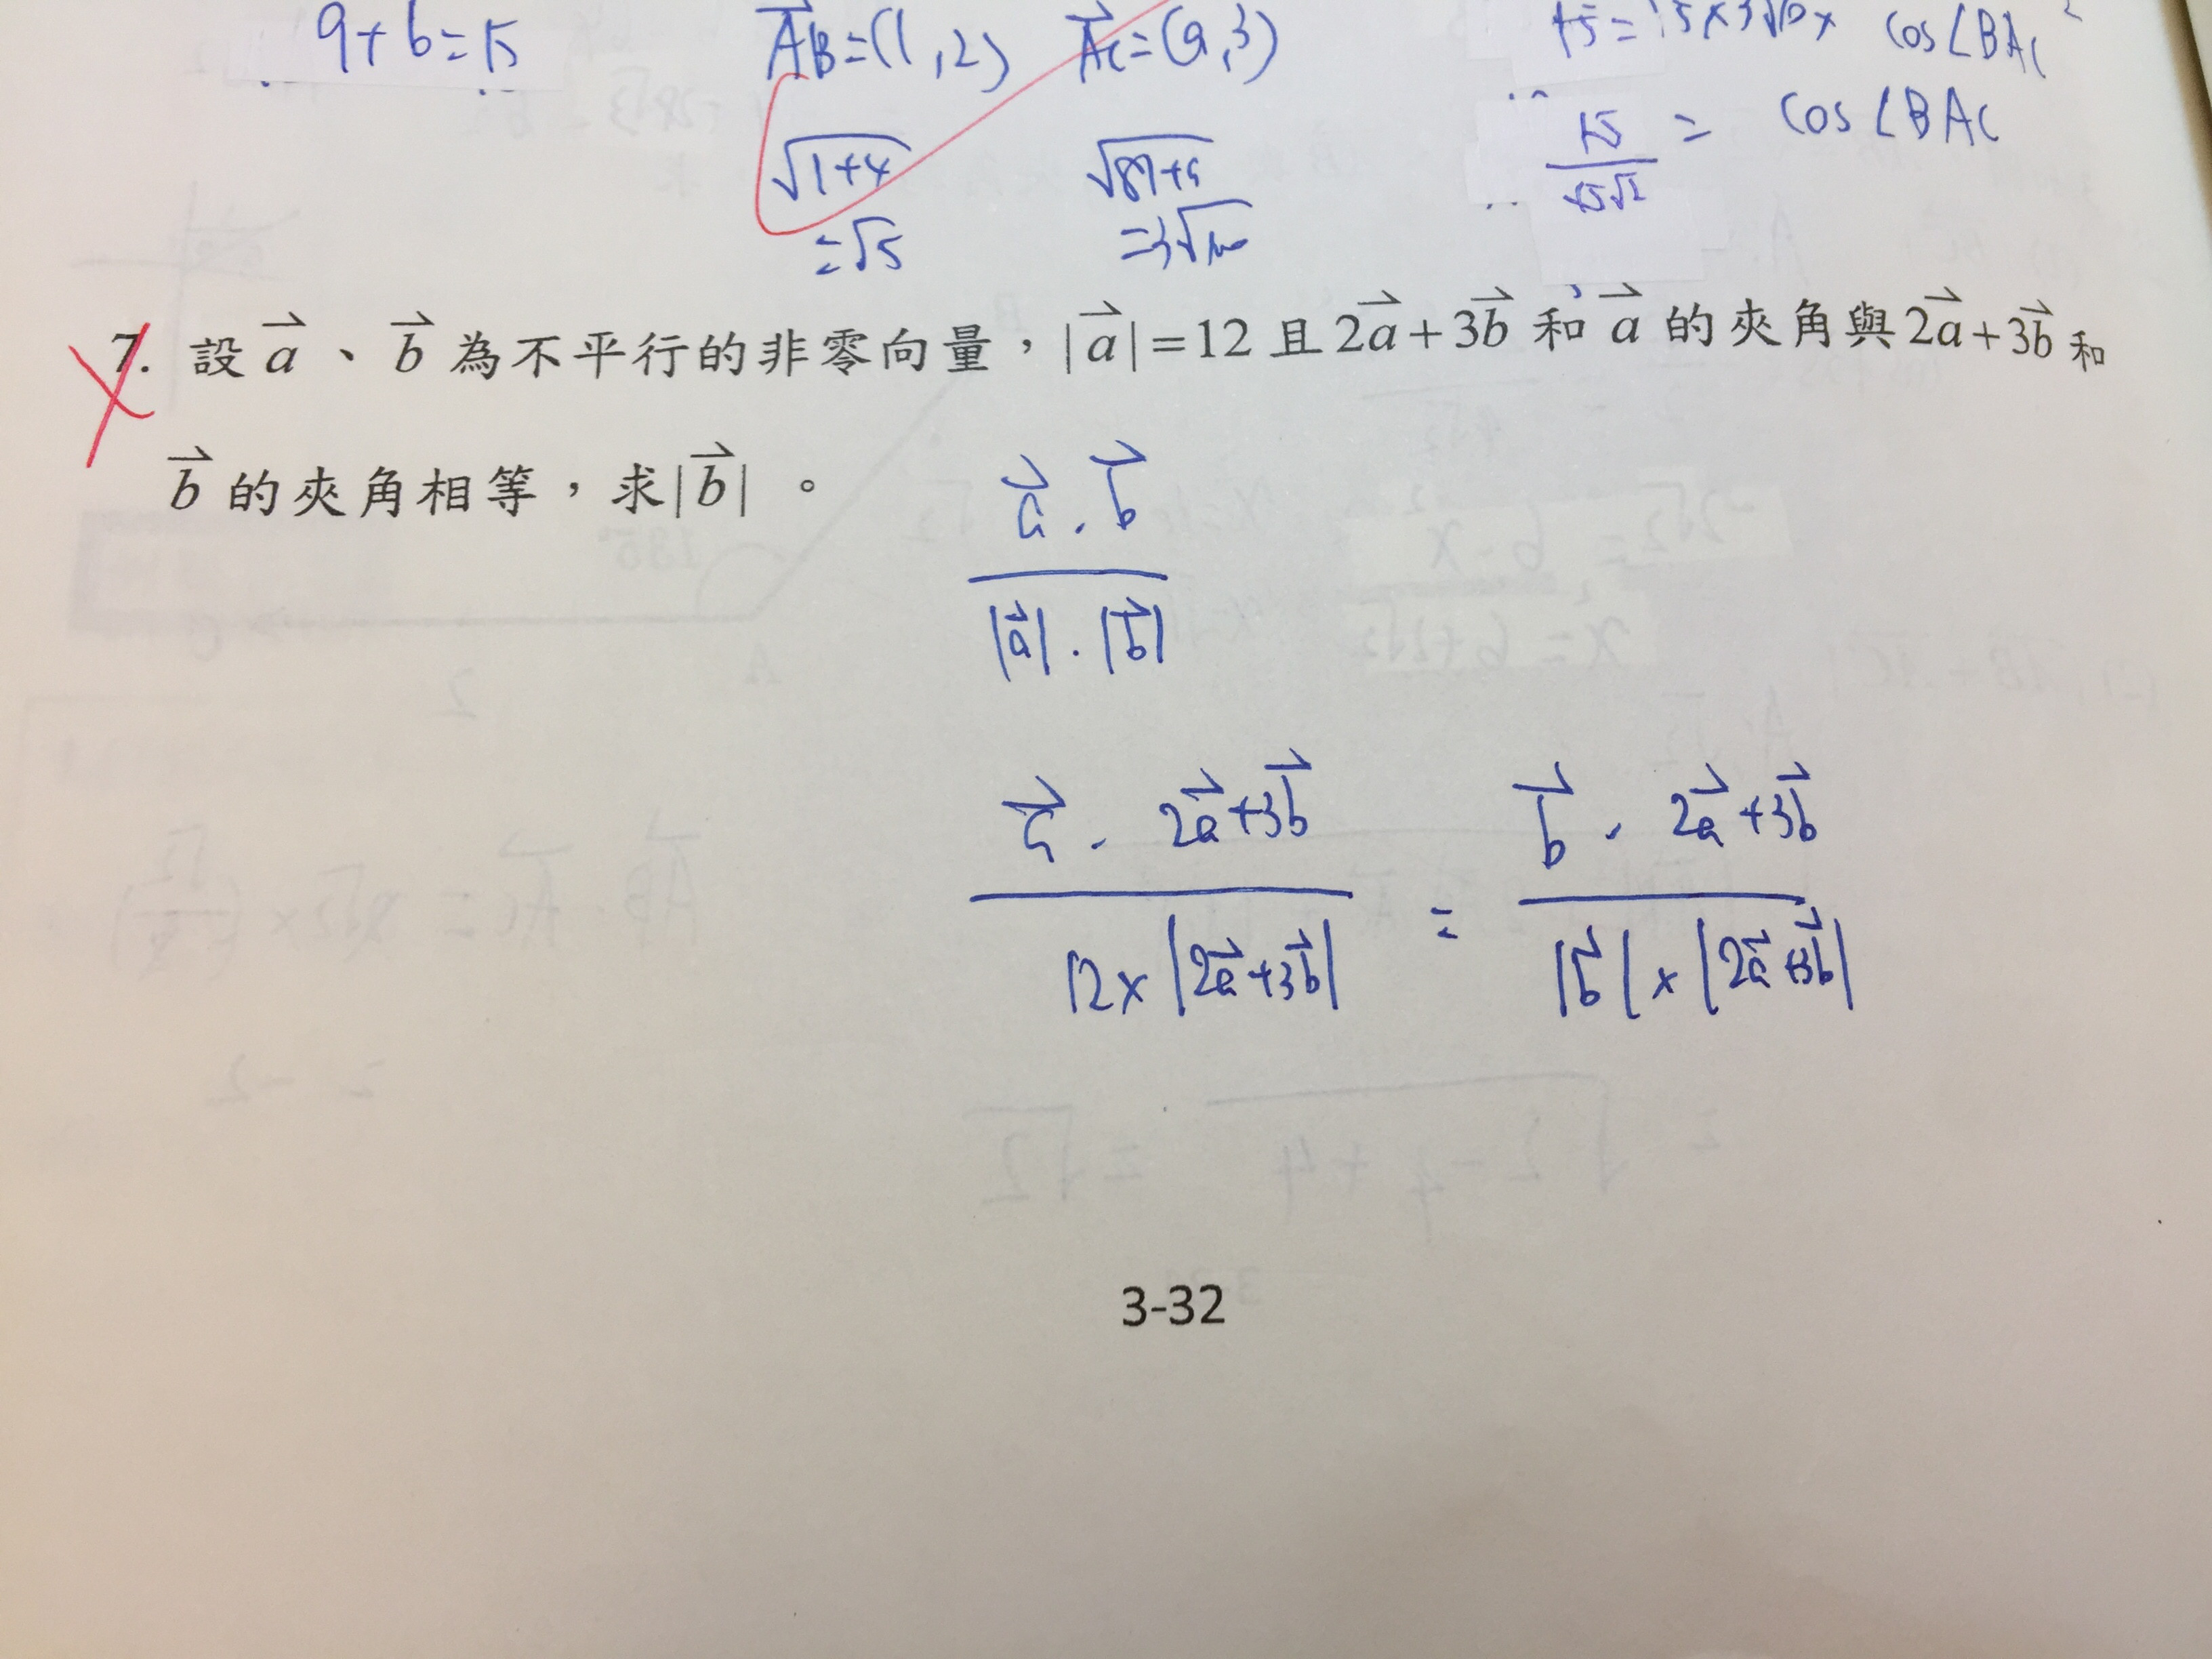 9+6=15 AB=(1,2) AC=(9,3) cos∠BAC
√1+4 15/√5√2 = cos∠BAC
=√5
7. 設 a、b 為不平行的非零向量,|a|=12 且 2a+3b 和 a 的夾角與 2a+3b 和
b 的夾角相等,求|b|。
a·b
|a|·|b|
a· 2a+3b b· 2a+3b
=
12×|2a+3b| |b|×|2a+3b|
3-32